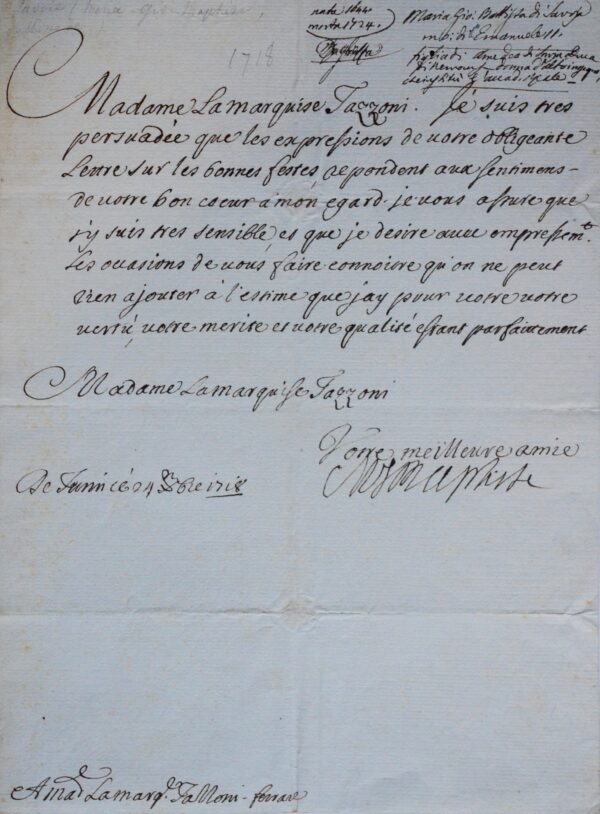 nata 1644
morta 1724
Battista
Maria Gio. Battista di Savoja
figlia di Amedeo di Savoja Duca
di Nemours
1718
Madame Lamarquise Tazzoni. Je suis tres
persuadée que les expressions de votre obligeante
Lettre sur les bonnes festes repondent aux sentimens
de votre bon coeur à mon egard. je vous assure que
j'y suis tres sensible et que je desire avec empressem.t
Les occasions de vous faire connoitre qu'on ne peut
rien ajouter à l'estime que jay pour votre votre
vertu, votre merite et votre qualité estant parfaitement
Madame Lamarquise Tazzoni
Votre meilleure amie
M J Baptiste
De Turin ce 24 Xbre 1718
A mad.e Lamarq.se Tassoni - ferrare